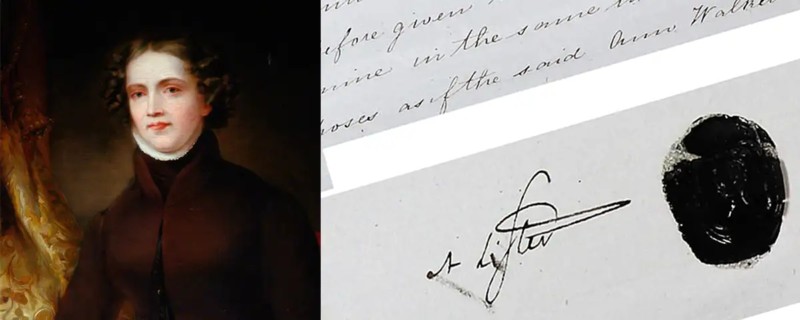 efore given
mine in the same
poses as if the said Ann Walker
A Lister